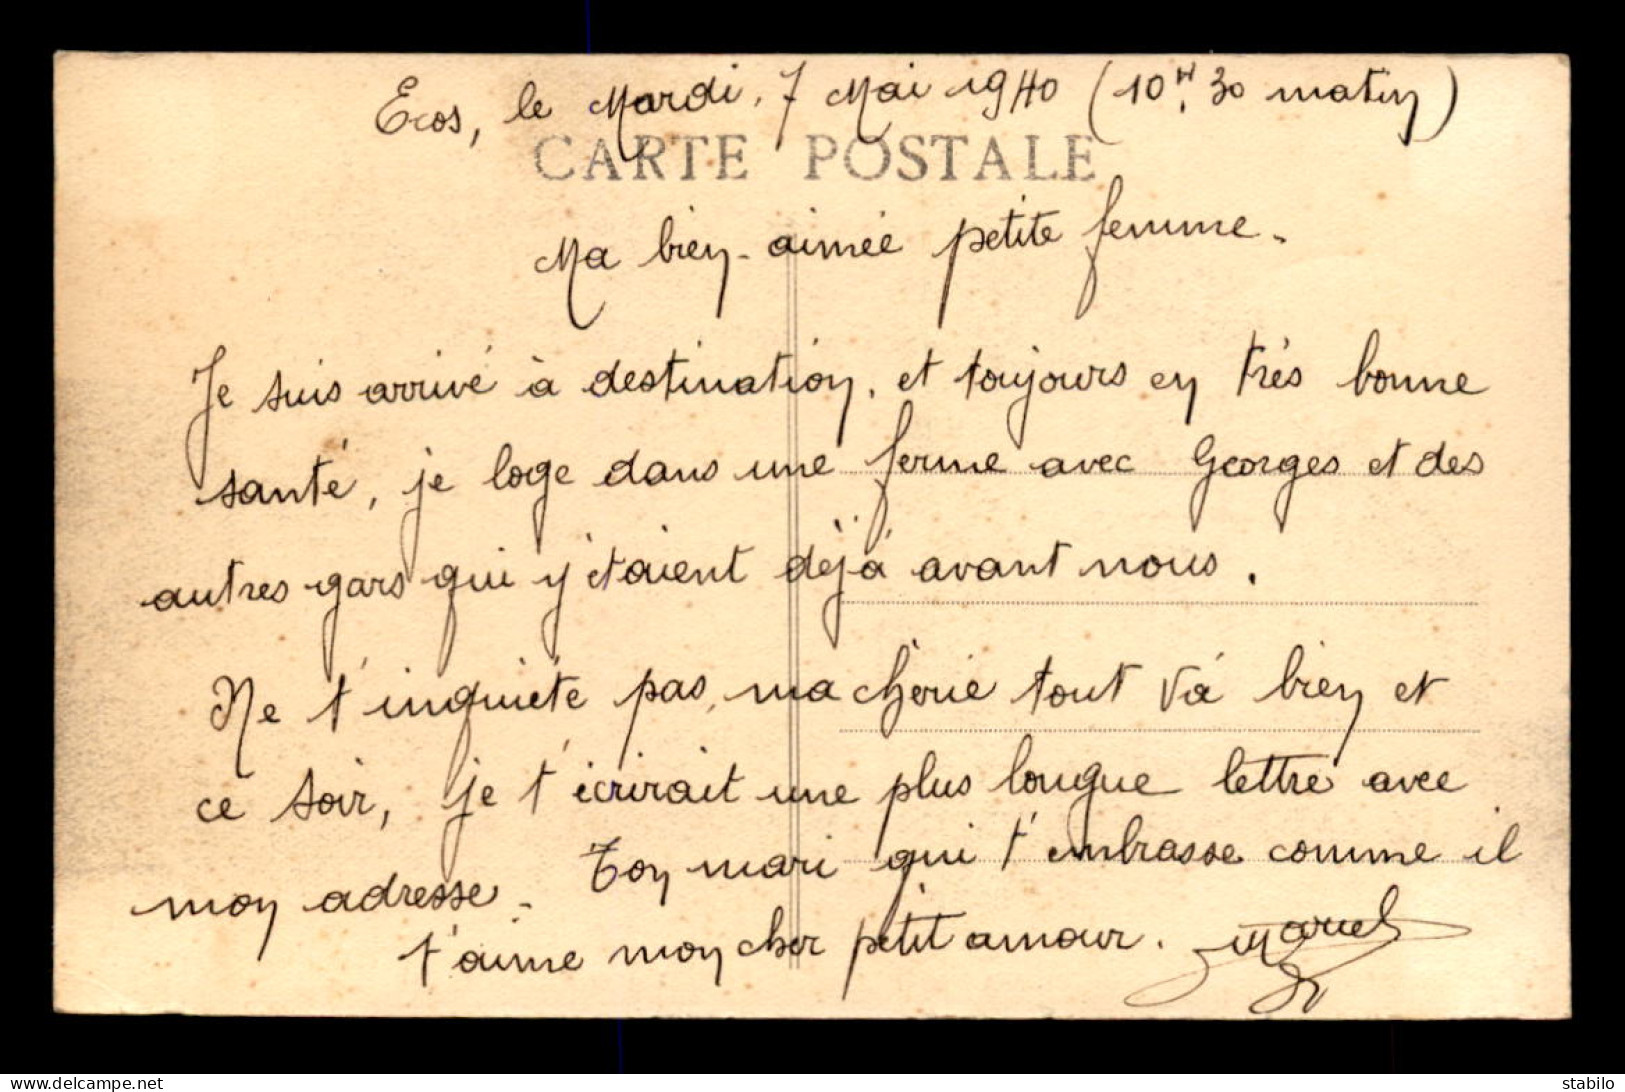 Ecos, le Mardi, 7 Mai 1940 (10H,30 matin)
CARTE POSTALE
Ma bien-aimée petite femme.
Je suis arrivé à destination, et toujours en très bonne
santé, je loge dans une ferme avec Georges et des
autres gars qui y étaient déjà avant nous.
Ne t'inquiéte pas, ma chérie tout và bien et
ce soir, je t'écrirait une plus longue lettre avec
mon adresse. Ton mari qui t'embrasse comme il
t'aime mon cher petit amour. Marcel
delcampe.net
stabilo